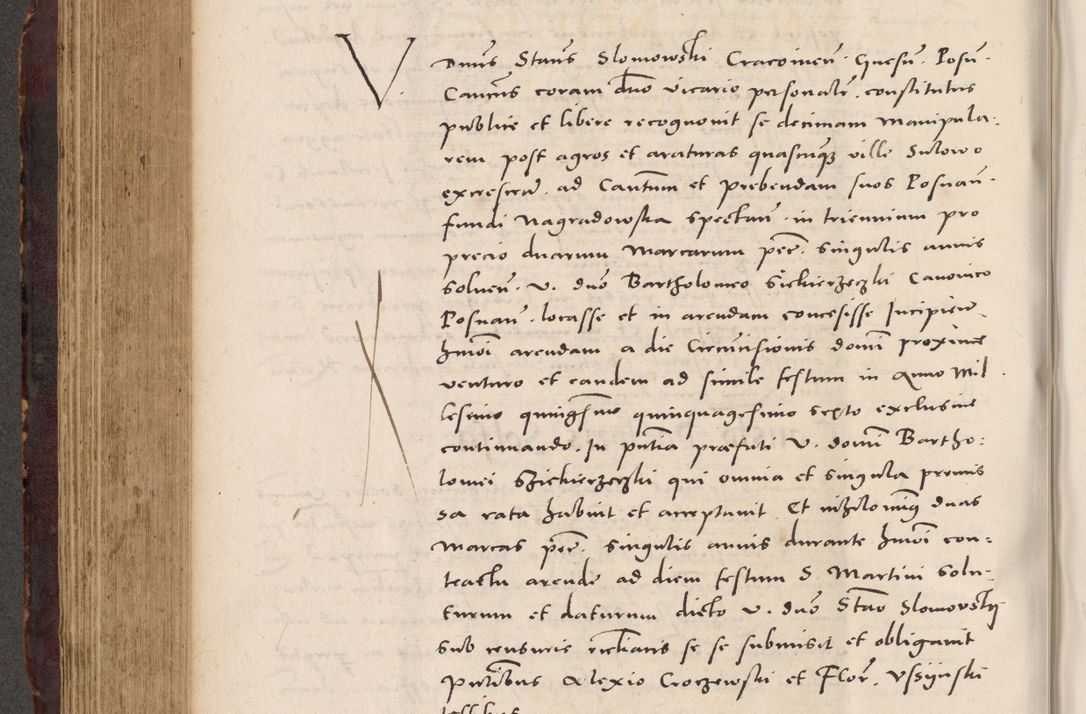 V. Dnus Stanus Slomowski Cracovien. Gnesn. Posn.
Canonus coram dno vicario personalr. constitutus
publice et libere recognovit se decimam manipula:
rem post agros et araturas quascunqz ville Sulowo
excrescen. ad Cantum et prebendam suos Posnan.
fundi Nagradowska spectan. in triennium pro
precio duarum marcarum pec. singulis annis
solven. v. dno Bartholomeo Siekierzeczki Canonico
Posnan. locasse et in arendam concesisse Incipien.
hmoi arendam a die Circucisionis domi proxime
venturo et eandem ad simile festum in Anno Mil
lesimo quingesimo quinquagesimo sexto exclusive
continuando. In pntia praefati v. domi Bartho:
lomei Sziekierzeczki qui omnia et singula premis
sa rata habuit et acceptavit. Et nihilominq duas
marcas pec. singulis annis durante hmoi con:
tractu arende ad diem festum S. Martini solu:
turum et daturum dicto v. dno Stano Slomovsky
sub censuris ecclasticis se se submisit et obligavit
pntibus Alexio Croczewski et Flor. Vssÿnski
testibus